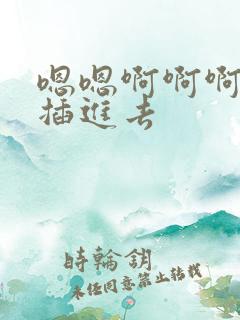 嗯嗯啊啊啊
插进去
時輪銷
未经同意禁止转载